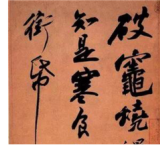 破竈燒
知是寒食
銜帋